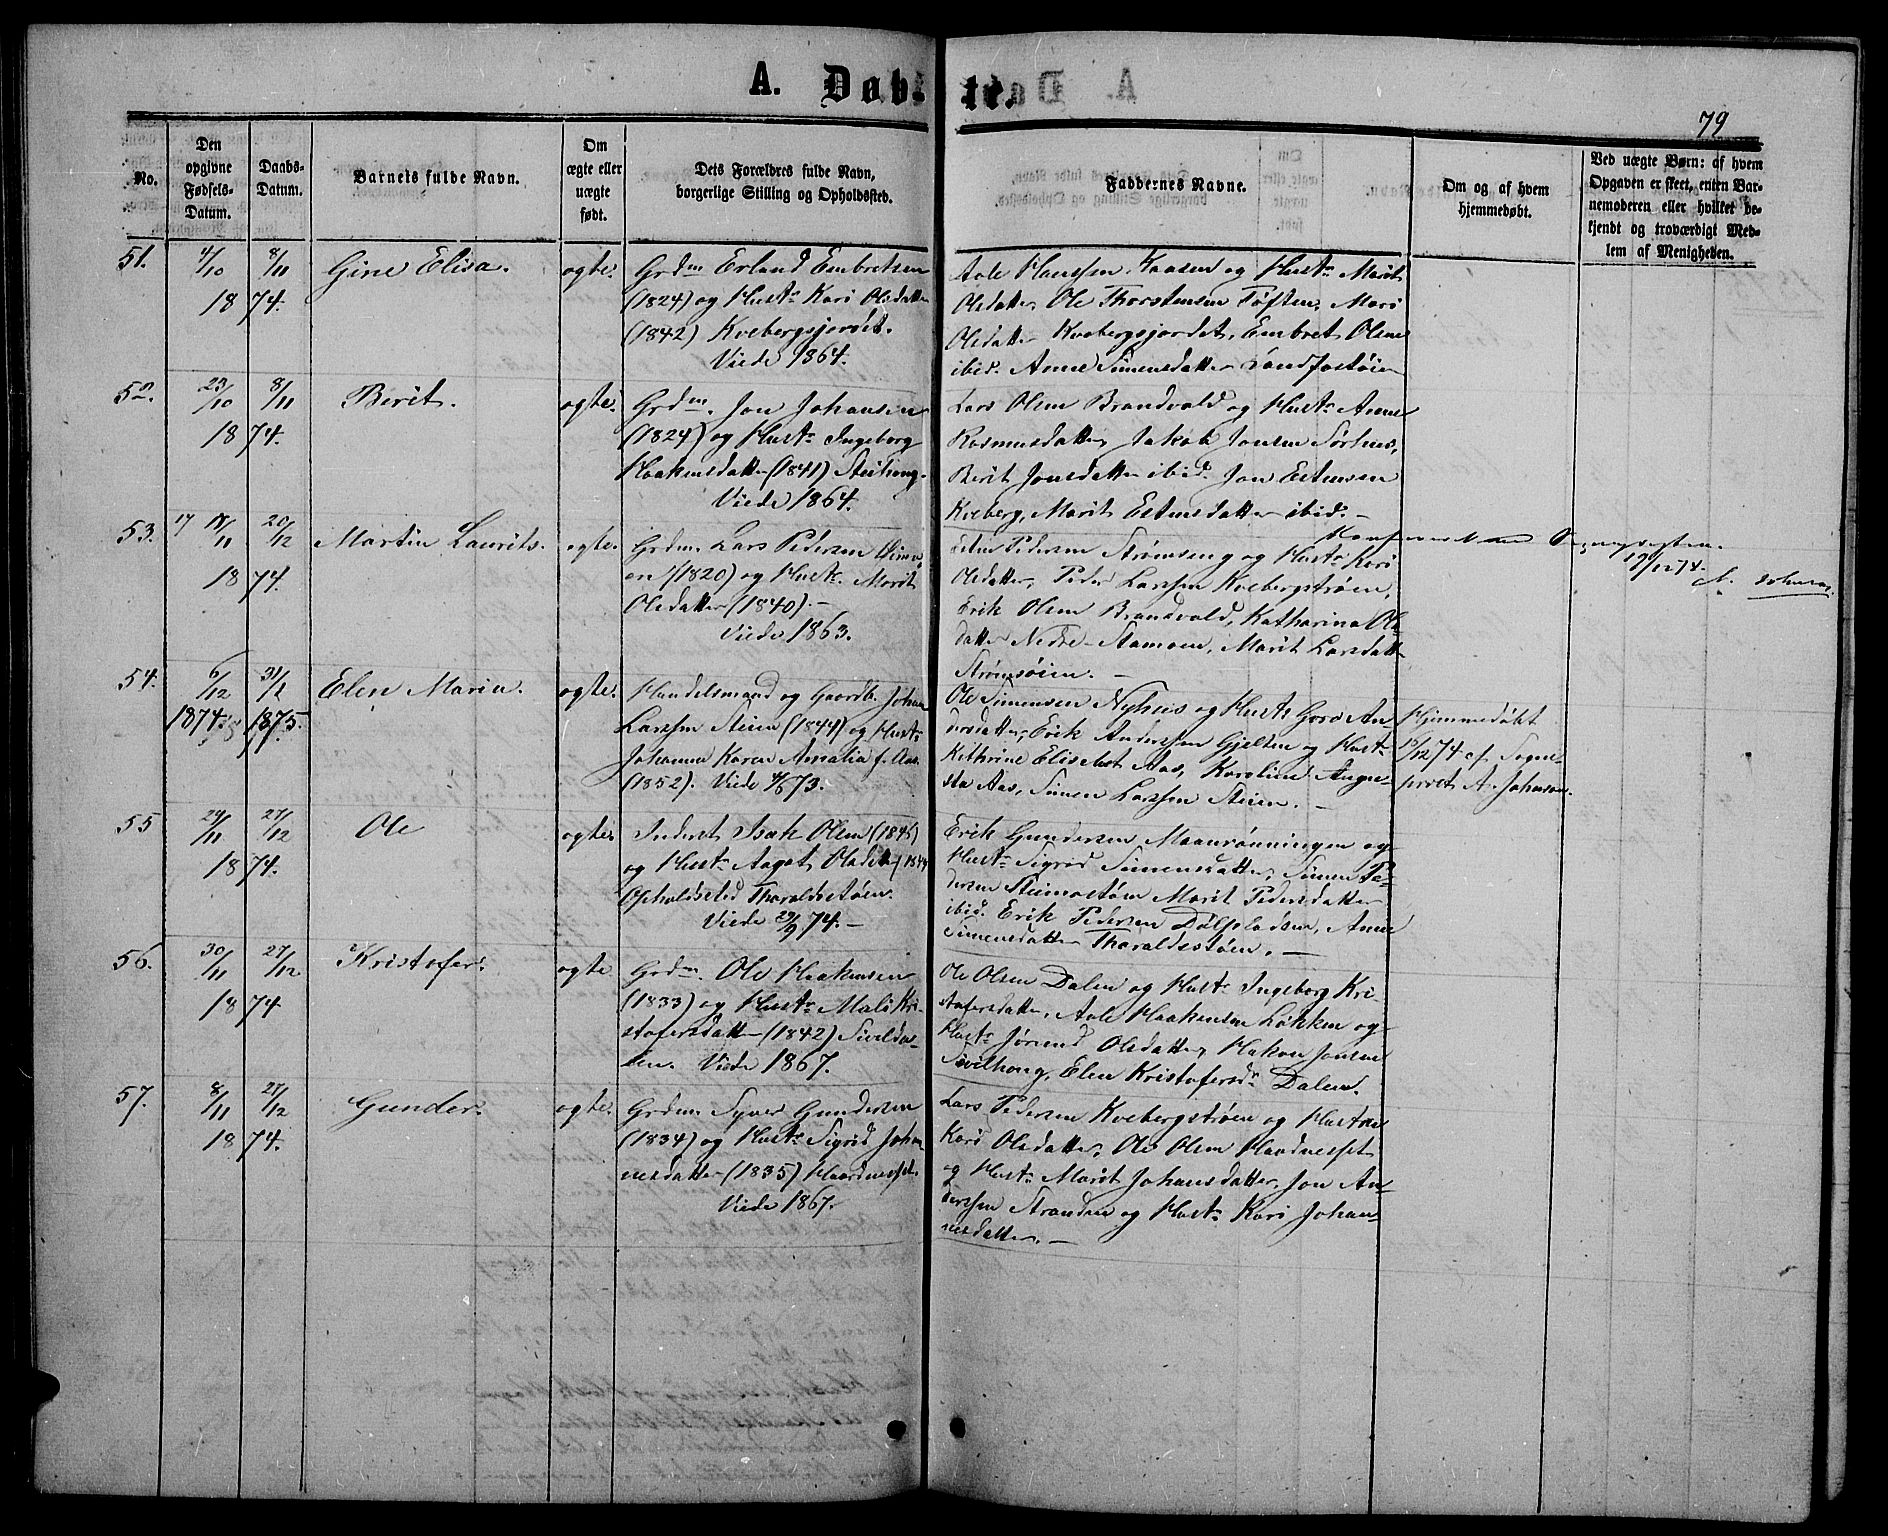 A. Døbte.
79
No.
Den opgivne Fødsels-Datum.
Daabs-Datum.
Barnets fulde Navn.
Om ægte eller uægte født.
Dets Forældres fulde Navn, borgerlige Stilling og Opholdssted.
Faddernes Navne.
Om og af hvem hjemmedøbt.
Ved uægte Børn: af hvem Opgaven er skeet, enten Barnemoderen eller hvilket bekjendt og troværdigt Medlem af Menigheden.
51.
4/10 8/11
1874.
Gine Elisa.
ogte.
Grdm Erland Embretsen
(1824) og Hustr Kari Olsdatter
(1842) Kvebergsjordet.
Viede 1864.
Aole Hanssen Kaasen og Hustr Marit
Olsdatter, Ole Thorstensen Tøften, Mari
Olsdatter Kvebergsjordet, Embret Olsen
ibid. Anne Simensdatter
52.
23/10 8/11
1874.
Berit.
ogte.
Grdm. Jon Johansen
(1824) og Hustr Ingeborg
Haakensdatter (1841)
Viede 1864.
Lars Olsen Brandvold og Hustr Anne
Rasmusdatter, Jakob Jonsen Sørhus,
Berit Jonsdatter ibid. Jon Estensen
Kveberg, Marit Estensdatter ibid. —
53.
17 18/11 20/12
1874.
Martin Laurits.
ogte.
Grdm. Lars Pedersen
(1820) og Hustr. Marit
Olsdatter (1840). —
Viede 1863.
Esten Pedersen Strømseng og Hustr Kari
Olsdatter, Peder Larssen Kvebergstrøen,
Erik Olsen Brandvold, Katharina Ols-
datter Nedre-Stamoen, Marit Larsdatter
Strømsøien. —
19/12 74.
A. Johnson
54.
6/12 31/1
1874. 1875.
Elen Maria.
ogte.
Handelsmand og Gaardb. Johan
Larssen Steien (1844) og Hustr
Johanne Karen Amalia f. Aas
(1852). Viede 4/8 73.
Ole Simensen Nyhus og Hustr Goro An-
dersdatter, Erik Anderssen Gjelten og Hustr
Kathrine Elisabet Aas, Karoline Augu-
sta Aas, Simen Larssen Steien. —
Hjemmedøbt
15/12 74 af Sogne-
prest A. Johnson.
55
29/11 27/12
1874.
Ole
ogte.
Inderst Isak Olsen (1845)
og Hustr Aagot Olsdatter (1844
Opholdssted Tharaldsstøen.
Viede 29/9 74. —
Erik Gundersen Moanrønningen og
Hustr Sigrid Simensdatter, Simen Pe-
dersen Steimostøen Marit Pedersdatter
ibid. Erik Pedersen Dølpladsen, Anne
Simensdatter Tharaldsstøen. —
56.
30/11 27/12
1874.
Kristofer.
ogte
Grdm. Ole Haakensen
(1833) og Hustr Mali Kri-
stofersdatter (1842) Sivilda-
len. Viede 1867.
Ole Olsen Dalen og Hustr Ingeborg Kri-
stofersdatter, Aole Haakensen Løkken og
Hustr Jørend Olsdatter, Hakon Jonsen
Sivilhoug, Elen Kristofersdr Dalen.
57.
8/11 27/12
1874.
Gunder.
ogte.
Grdm. Syver Gundersen
(1834) og Hustr Sigrid Johan-
nesdatter (1835) Haardnesset.
Viede 1867.
Lars Pedersen Kvebergstrøen og Hustru
Kari Olsdatter, Ole Olsen Haardnesset
og Hustr Marit Johansdatter, Jon An-
derssen Stranden og Hustr Kari Johan-
nesdatter. —